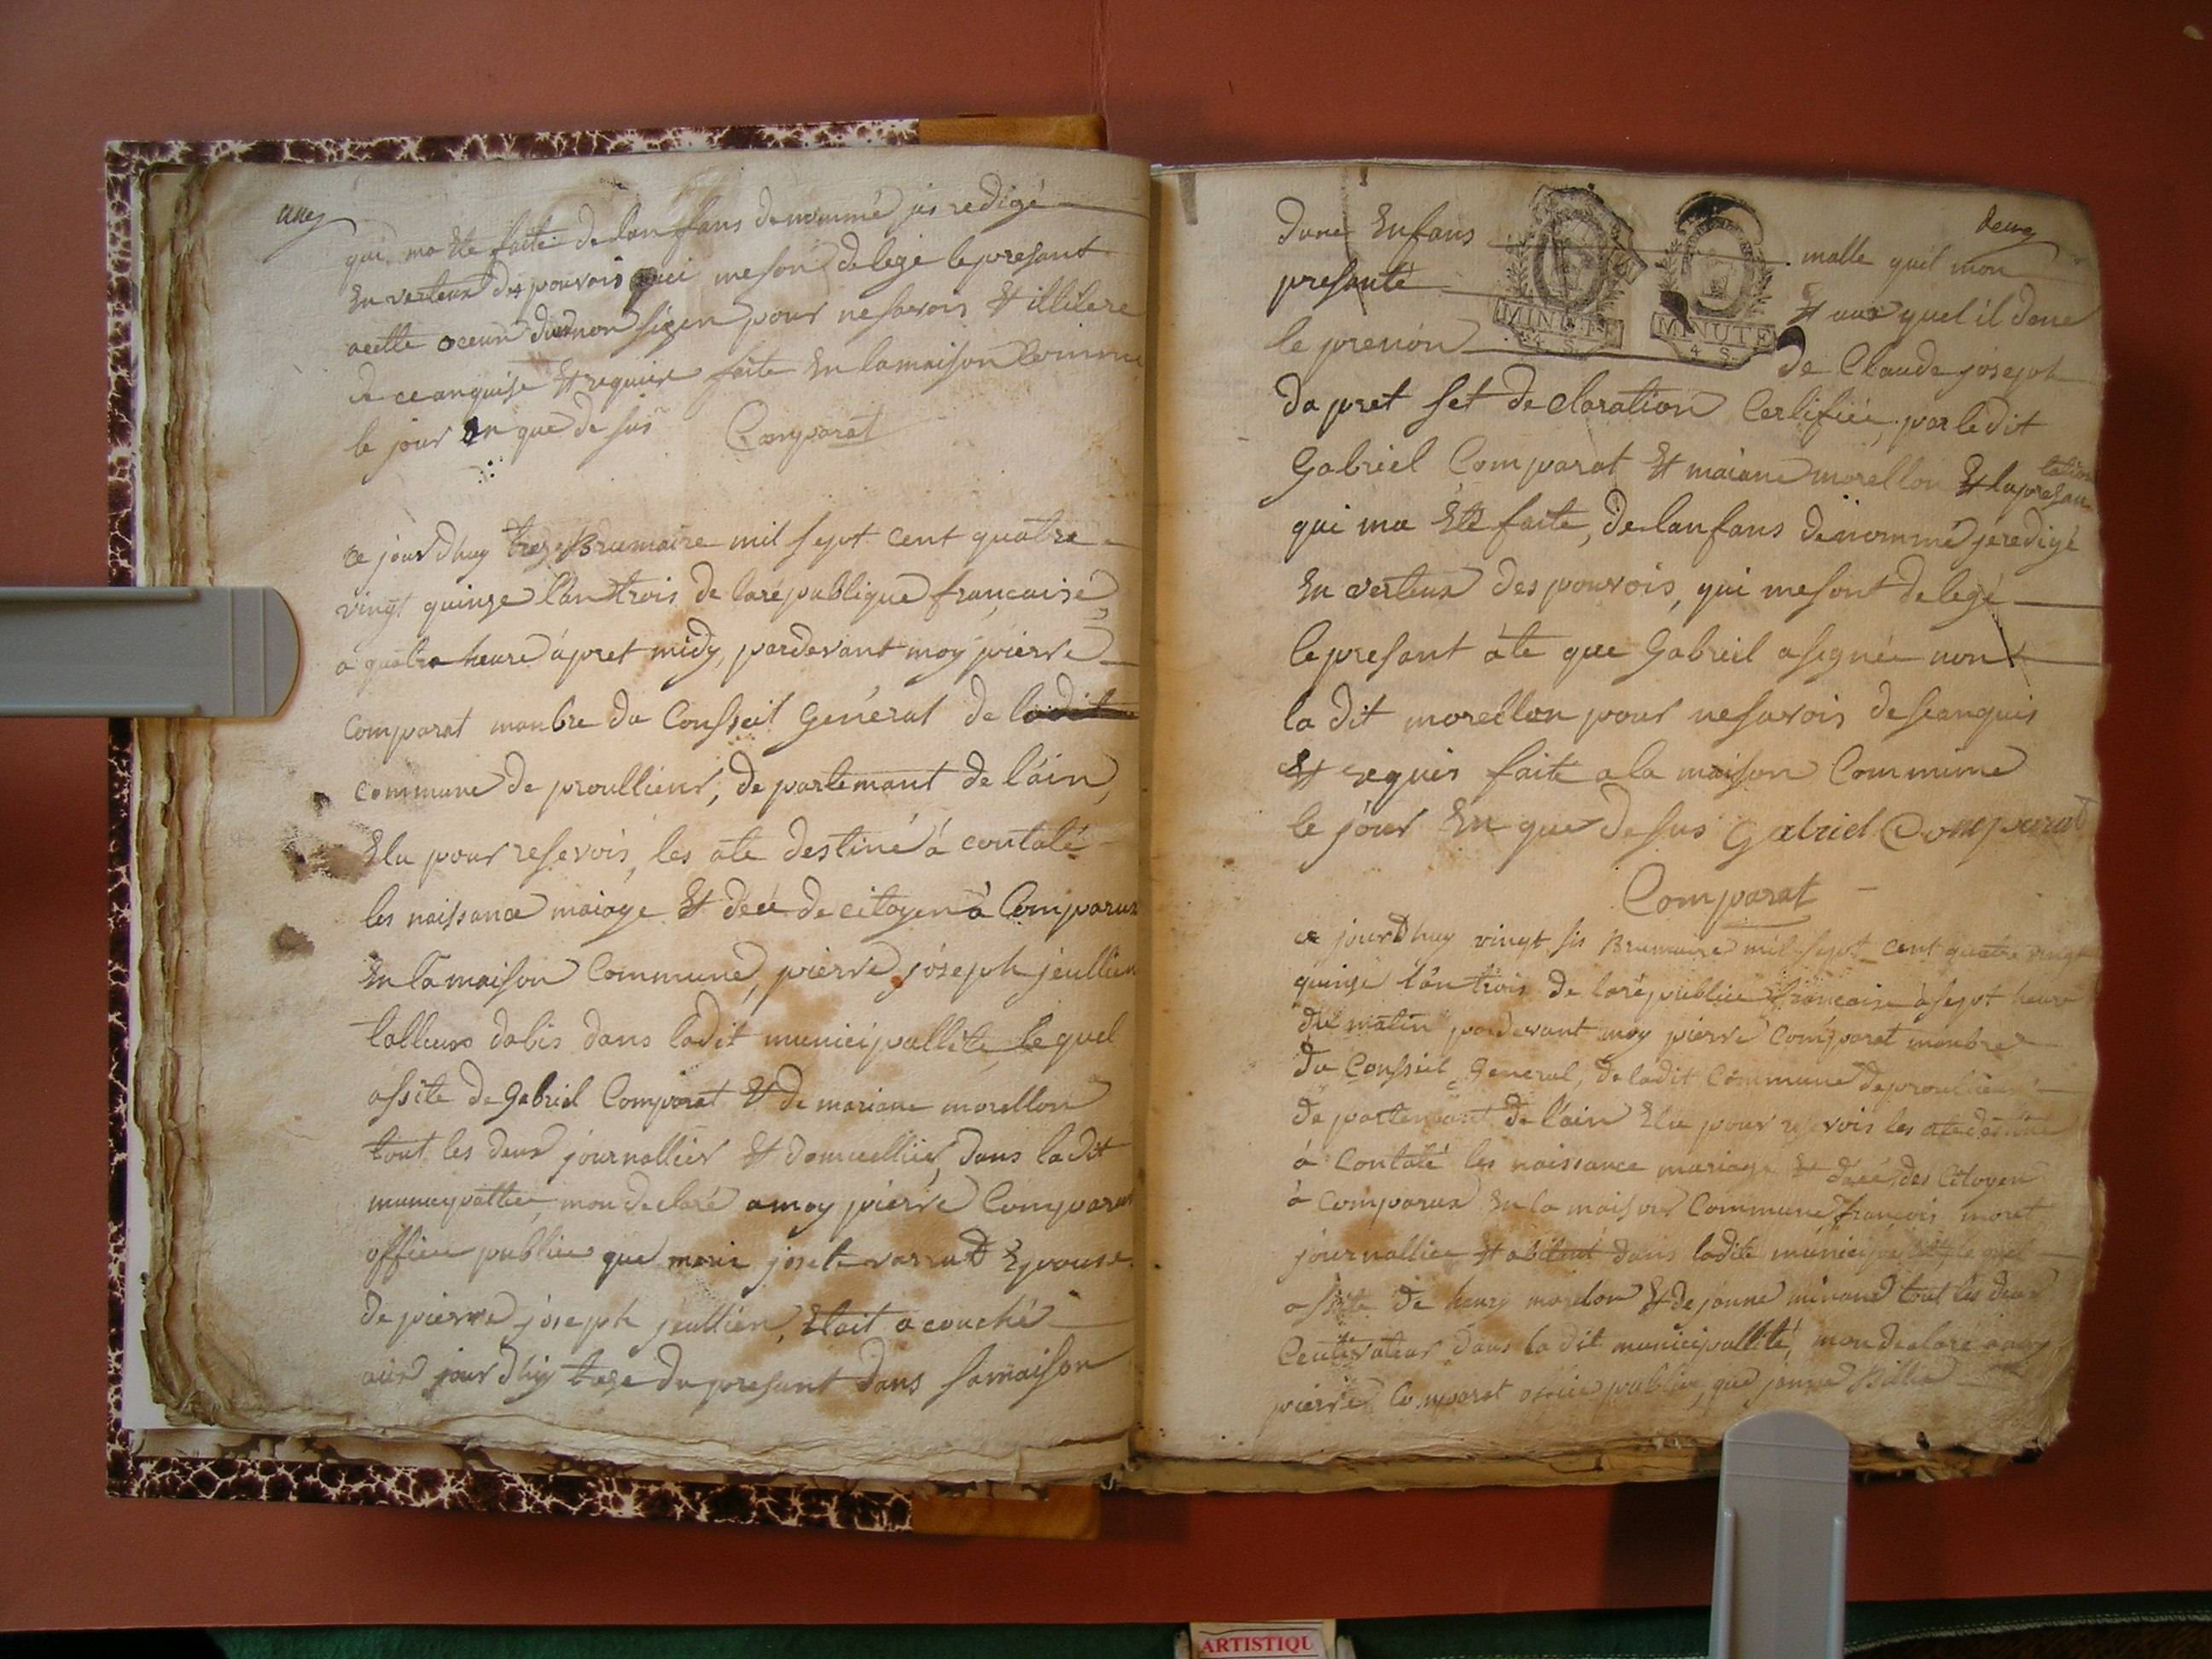 une
qui ma Ete faite de lanfans denommé jes redigé
En verteux des pouvois qui meson delegé le presant
acette ocun deus non sigen pour nesavois Et illitere
de ceanquise Et require faite En lamaison Commune
le jour En que de sus Comparat
ce jourdhuy treze Brumaire mil sept cent quatre
vingt quinze l'an trois de larépublique française
a quatre heure apret midy, pardevant moy pierre
Comparat manbre du Conseil Général de ladit
commune de proullieux, de partemant de l'ain,
Elu pour resevois, les ate destiné à contaté
les naissance maiage Et déée de citoyen à Comparux
En la maison Commune, pierre joseph jeullien
talleurs dabis dans ladit municipallité, lequel
assite de Gabriel Comparat Et de mariane morellon
tout les deux journallier Et domicellier, dans ladit
municipallité, mon declaré amoy pierre Comparat
officie publice que marie josete varrud Epouse
de pierre joseph jeullien, Etait acouché
aux jourdhuy treze du presant dans samaison
deux
dune Enfans malle quil mon
presanté Et aux quel il done
le prenon de Claude joseph
dapret set declaration Certifiée, par ledit
Gabriel Comparat Et maiane morellon Et lapresantation
qui ma Eté faite, de lanfans dénommé jéredigé
En verteux des pouvois, qui mesont delegé
le presant ate que Gabriel asignée non
la dit morellon pour nesavois de seanquis
Et requis faite a la maison Commune
le jour En que de sus Gabriel Comparat
Comparat
ce jourdhuy vingt sis Brumaire mil sept cent quatre vingt
quinze l'an trois de larépublice française à sept heure
du matin pardevant moy pierre Comparat manbre
du Conseil General, de ladit Commune de proullieux
de partemant de l'ain Elu pour resevois les ate destiné
à Contaté les naissance mariage Et déée des Citoyen
à Comparux En la maison Commune, françois moret
journallier Et abitant dans ladite municipallité, le quel
assite de henry mardon Et de janne minand tout les deux
Ceutivateur dans ladit municipallité, mon declaré amoy
pierre Comparat oficie publice, que janne Billie
MINUTE
4 S.
MINUTE
4 S.
ARTISTIQU